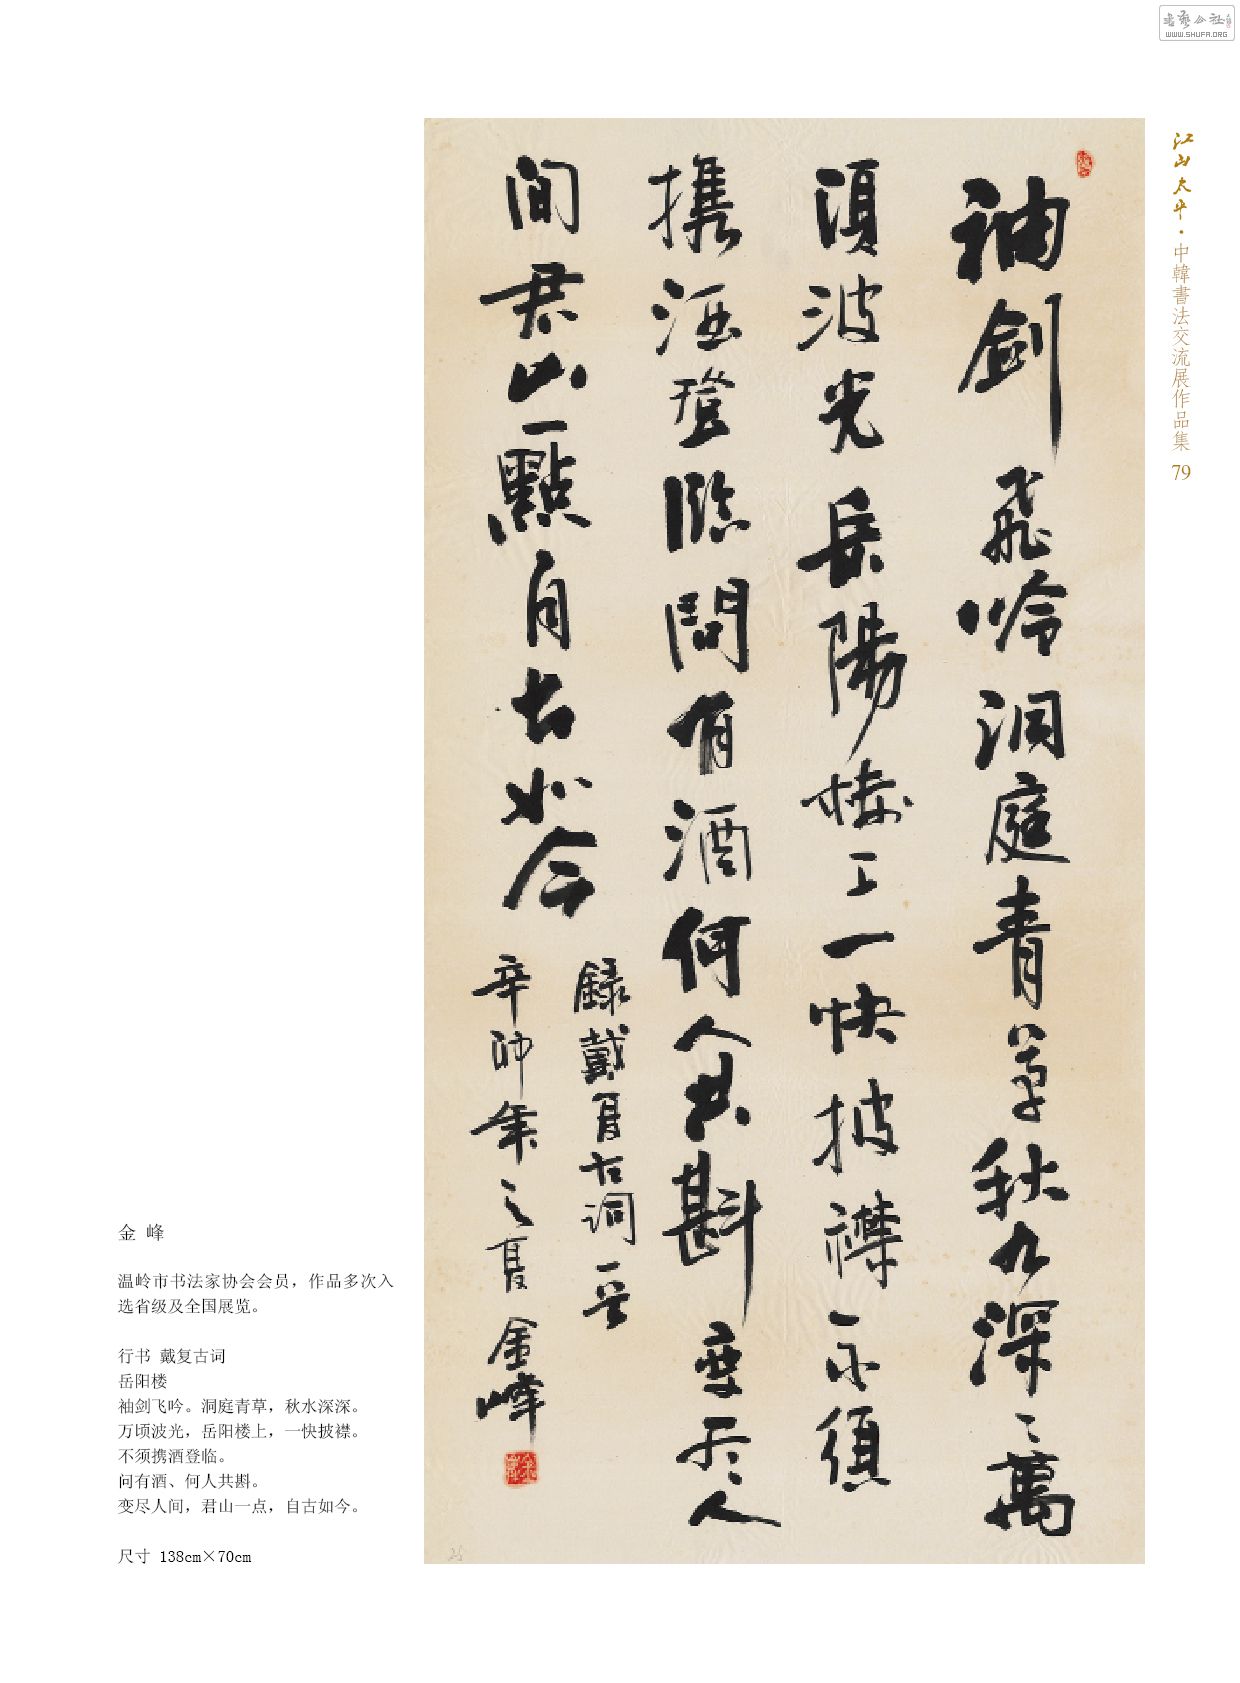 书艺公社
WWW.SHUFA.ORG
江山太平·中韓書法交流展作品集 79
袖劍飛吟洞庭青草秋水深〻萬
頃波光岳陽樓上一快披襟不須
携酒登臨問有酒何人共斟變尽人
間君山一點自古如今
錄戴復古詞一首
辛卯年之夏金峰
金 峰
温岭市书法家协会会员，作品多次入
选省级及全国展览。
行书 戴复古词
岳阳楼
袖剑飞吟。洞庭青草，秋水深深。
万顷波光，岳阳楼上，一快披襟。
不须携酒登临。
问有酒、何人共斟。
变尽人间，君山一点，自古如今。
尺寸 138cm×70cm